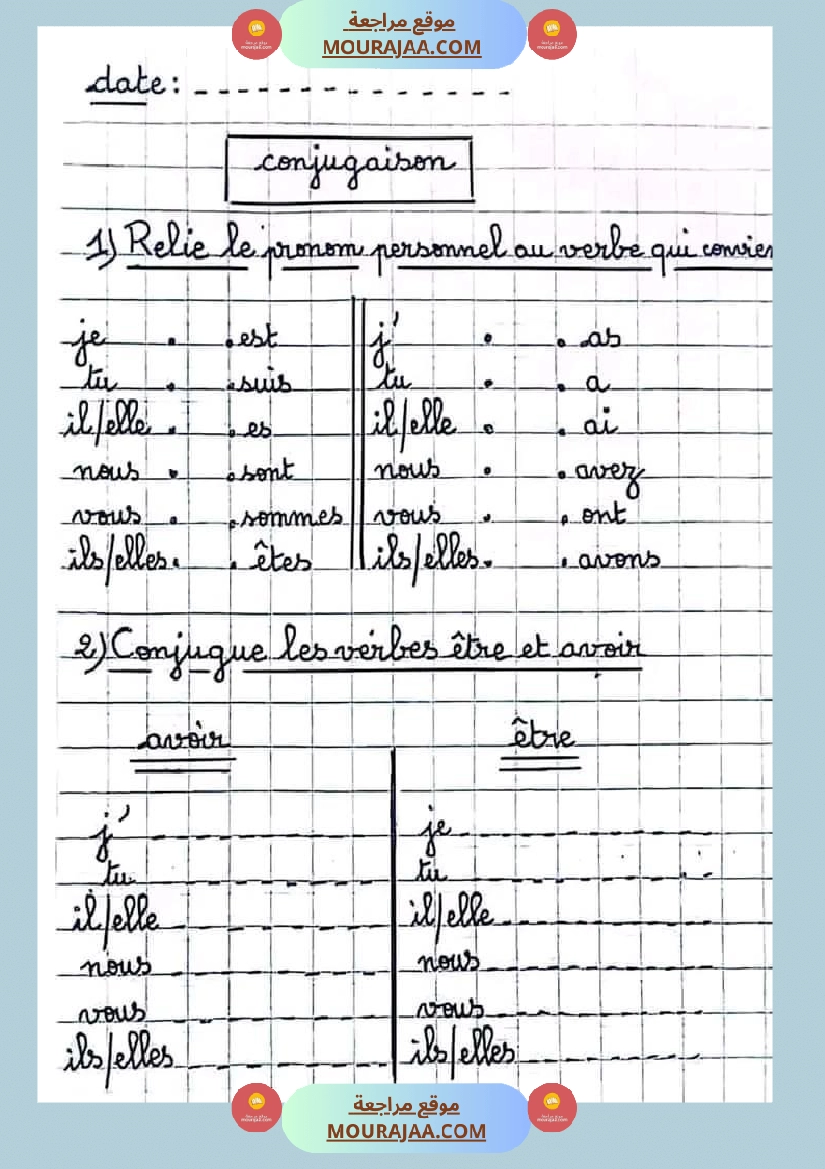 موقع مراجعة
MOURAJAA.COM
date: - - - - - - - - - - - - - -
conjugaison
1) Relie le pronom personnel au verbe qui convien
je . . est j' . . as
tu . . suis tu . . a
il/elle . . es il/elle . . ai
nous . . sont nous . . avez
vous . . sommes vous . . ont
ils/elles . . êtes ils/elles . . avons
2) Conjugue les verbes être et avoir
avoir être
j' - - - - - - - - je - - - - - - - - - -
tu - - - - - - - - tu - - - - - - - - - -
il/elle - - - - - - - - il/elle - - - - - - - - - -
nous - - - - - - - - nous - - - - - - - - - -
vous - - - - - - - - vous - - - - - - - - - -
ils/elles - - - - - - - - ils/elles - - - - - - - - - -
موقع مراجعة
MOURAJAA.COM